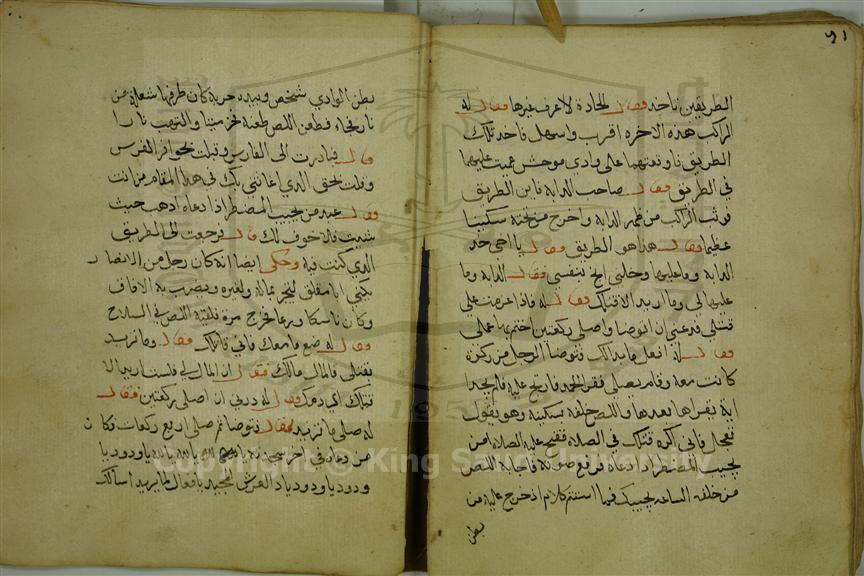 ٩١
الطريقين ناخد فقال الجادة لا اعرف غيرها فقال له
الراكب هذه الاخره اقرب واسهل فاخد تلك
الطريق فاوقعتهما على وادي موحش عميت عليهما
في الطريق فقال صاحب الدابة فاين الطريق
فوثب الراكب من ظهر الدابة واخرج من تحته سكينا
عظيما فقال هذا هو الطريق فقال يا اخي خد
الدابة وما عليها وخلني انج بنفسي فقال الدابة وما
عليها لي وما اريد الا قتلك فقال له فاذا عزمت على
قتلي فدعني ان اتوضا واصلي ركعتين اختم بها عملي
فقال له افعل ما بدا لك فتوضا الرجل من ركوة
كانت معه وقام يصلي فقرا الحمد فارتج عليه فلم يجد
اية يقراها بعدها واللص خلفه بسكينه وهو يقول
تعجل فاني اكره قتلك في الصلاة ففتح عليه الصلاة امن
يجيب المضطر اذا دعاه فرفع صوته فاجابه اللص
من خلفه الساعه يجيبك فما استتم كلام اذ خرج عليه من
بطن
بطن الوادي شخص وبيده حربة كان طرفها شعلة من
نار فجاء فطعن اللص طعنة فخر ميتا والتهب نارا
قال فبادرت الى الفارس وقبلت حوافر الفرس
وقلت بحق الذي اغاثني بك في هذا المقام من انت
فقال عبد من يجيب المضطر اذا دعاه ادهب حيث
شيت فلا خوف لك قال فرجعت الى الطريق
الدي كنت فيه وحكي ايضا انه كان رجل من الانصار
يكنى ابا مغلق يتجر بماله ولغيره ويضرب به الافاق
وكان ناسكا ورعا فخرج مرة فلقيه اللص في السلاح
فقال له ضع ما معك فاني قاتلك فقال وما تريد
بقتلي فالمال مالك فقال ان المال لي فلست اريد الا
قتلك اي دمك فقال له درني ان اصلي ركعتين فقال
له صلي ما تريد قال فتوضا ثم صلي اربع ركعات وكان
من دعاه في اخر سجدته بسم الله يا الله يا ودود يا
ودود يا ودود يا ذا العرش المجيد يا فعال لما يريد اسالك